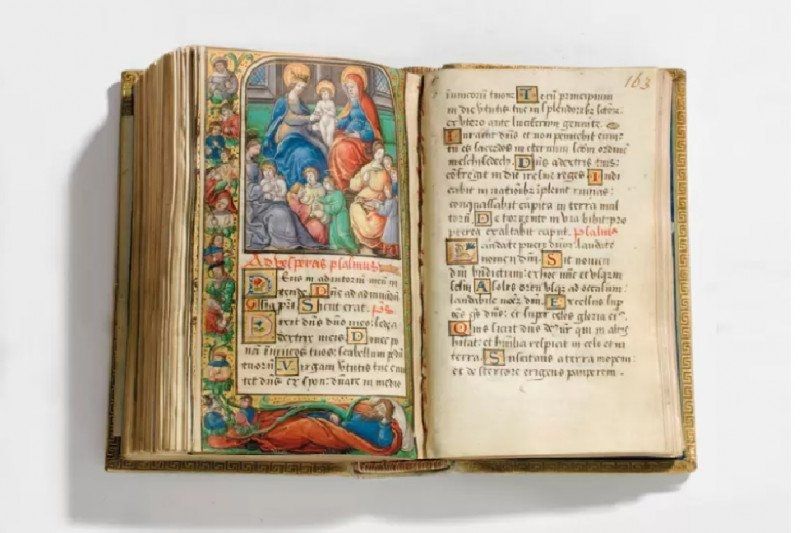 Ad vesperas psalmus
Deus in adiutoriū meū in
tende. Dn̄e ad adiuuandū
Gl̄ia pr̄i. Sicut erat. ps̄
Dixit dn̄s dn̄o meo: sede a
dextris meis. Donec po
nā inimicos tuos: scabellum pedū
tuorū. Virgam v̄tutis tue emi
tet dn̄s ex syon: dn̄are in medio
163
inimicorū tuorꝝ. Tecū principium
in die v̄tutis tue in splendoribꝫ
ex vtero ante luciferum genui te.
Iurauit dn̄s et non penitebit eum:
tu es sacerdos in eternum scdm ordinē
melchisedech. Dn̄s a dextris tuis:
cōfregit in die ire sue reges. Iudi
cabit in nationibꝫ īplebit ruinas:
conquassabit capita in terra mul
torū. De torrente in via bibit: pro
pterea exaltabit caput. psalmus
Laudate pueri dn̄m: laudate
nomen dn̄i. Sit nomen
dn̄i bn̄dictum: ex hoc nūc et vsqꝫ in
A solis ortu vsqꝫ ad occasum:
laudabile nomē dn̄i. Excelsus sup
dn̄s: et super celos gloria eiꝰ.
Quis sicut dn̄s deꝰ nr̄ qui in altis
hitat: et humilia respicit in celo et in
terra. Suscitans a terra inopem:
et de stercore erigens pauperem.